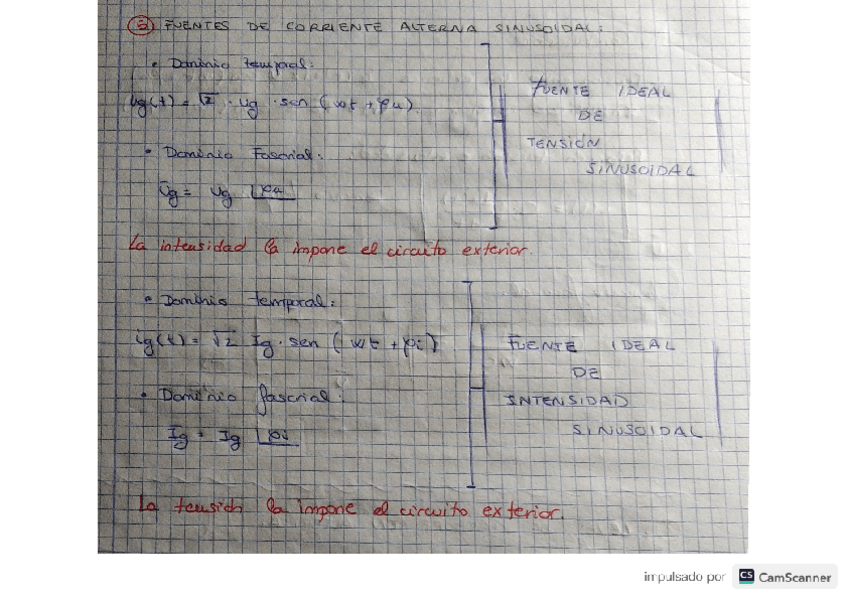 5 FUENTES DE CORRIENTE ALTERNA SINUSOIDAL:
• Dominio temporal:
ug(t) = √2 · Ug · sen (wt + φu)
FUENTE IDEAL
DE
TENSIÓN
SINUSOIDAL
• Dominio Fasorial:
Ūg = Ug |φu
La intensidad la impone el circuito exterior.
• Dominio temporal:
ig(t) = √2 Ig · sen (wt + φi)
FUENTE IDEAL
DE
INTENSIDAD
SINUSOIDAL
• Dominio fasorial:
Īg = Ig |φi
La tensión la impone el circuito exterior.
impulsado por CS CamScanner